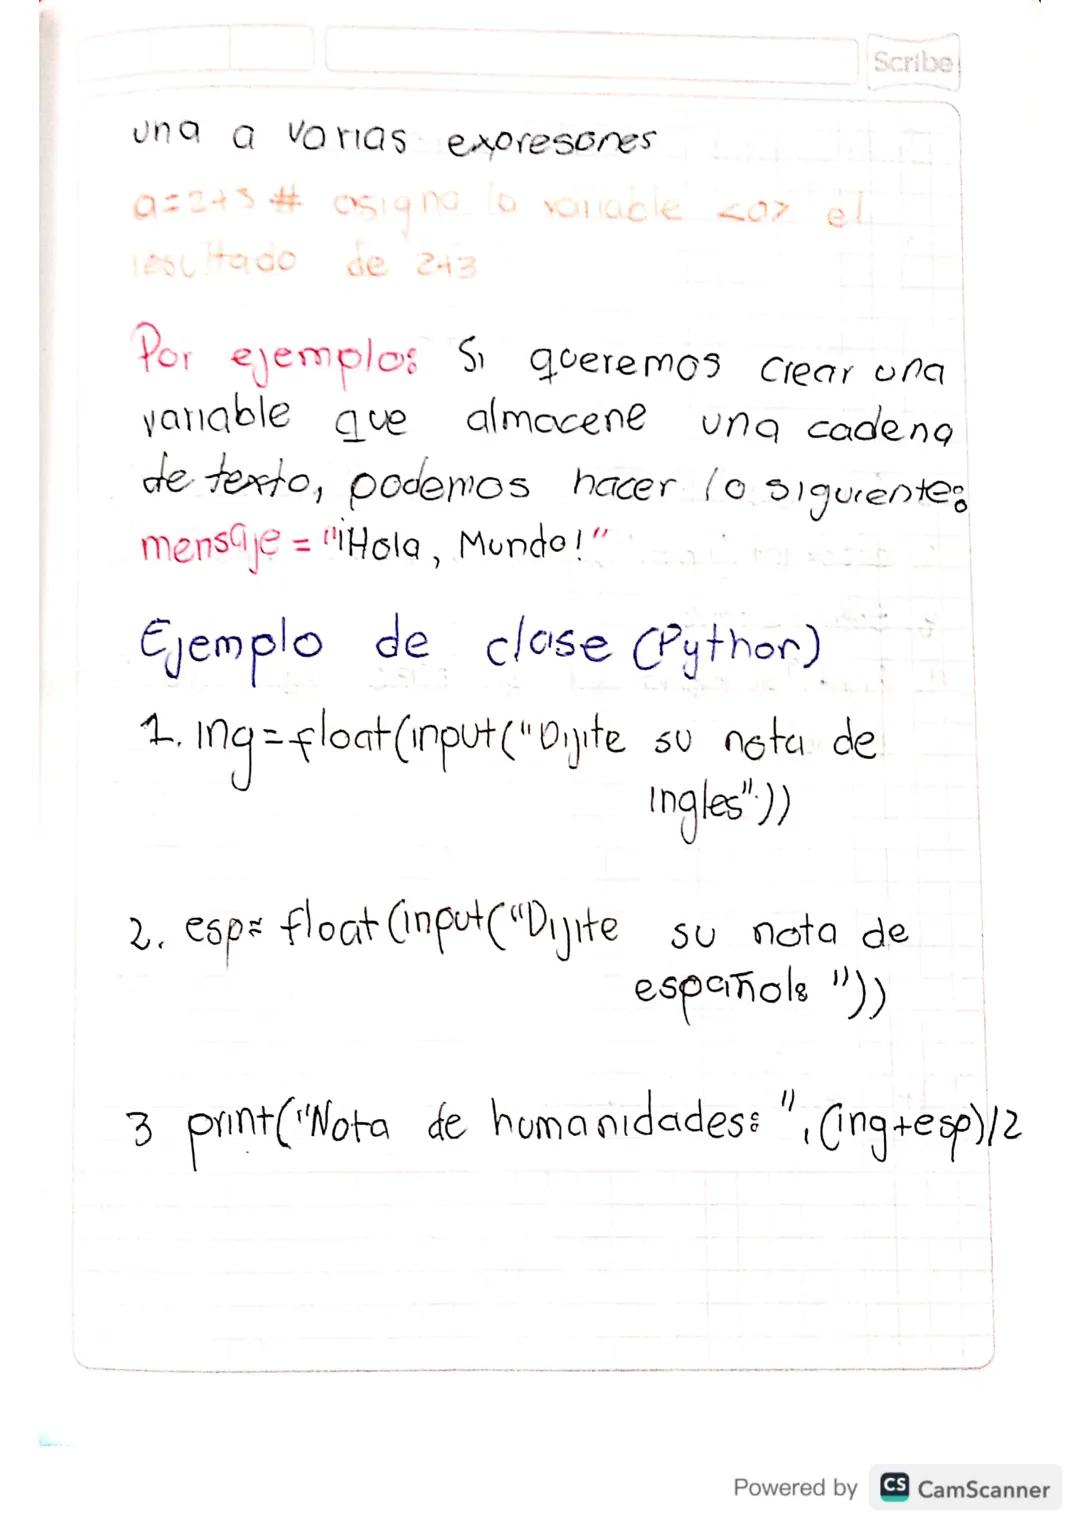 Scribe
una a varias expresones
a=2+3 # asigna la variable <a> el
resultado de 2+3
Por ejemplo: Si queremos crear una
variable que almacene una cadena
de texto, podemos hacer lo siguiente:
mensaje = "¡Hola, Mundo!"
Ejemplo de clase (Python)
1. ing=float(input("Dijite su nota de
ingles"))
2. esp= float(input("Dijite su nota de
español: "))
3 print("Nota de humanidades: ", (ing+esp)/2
Powered by CS CamScanner